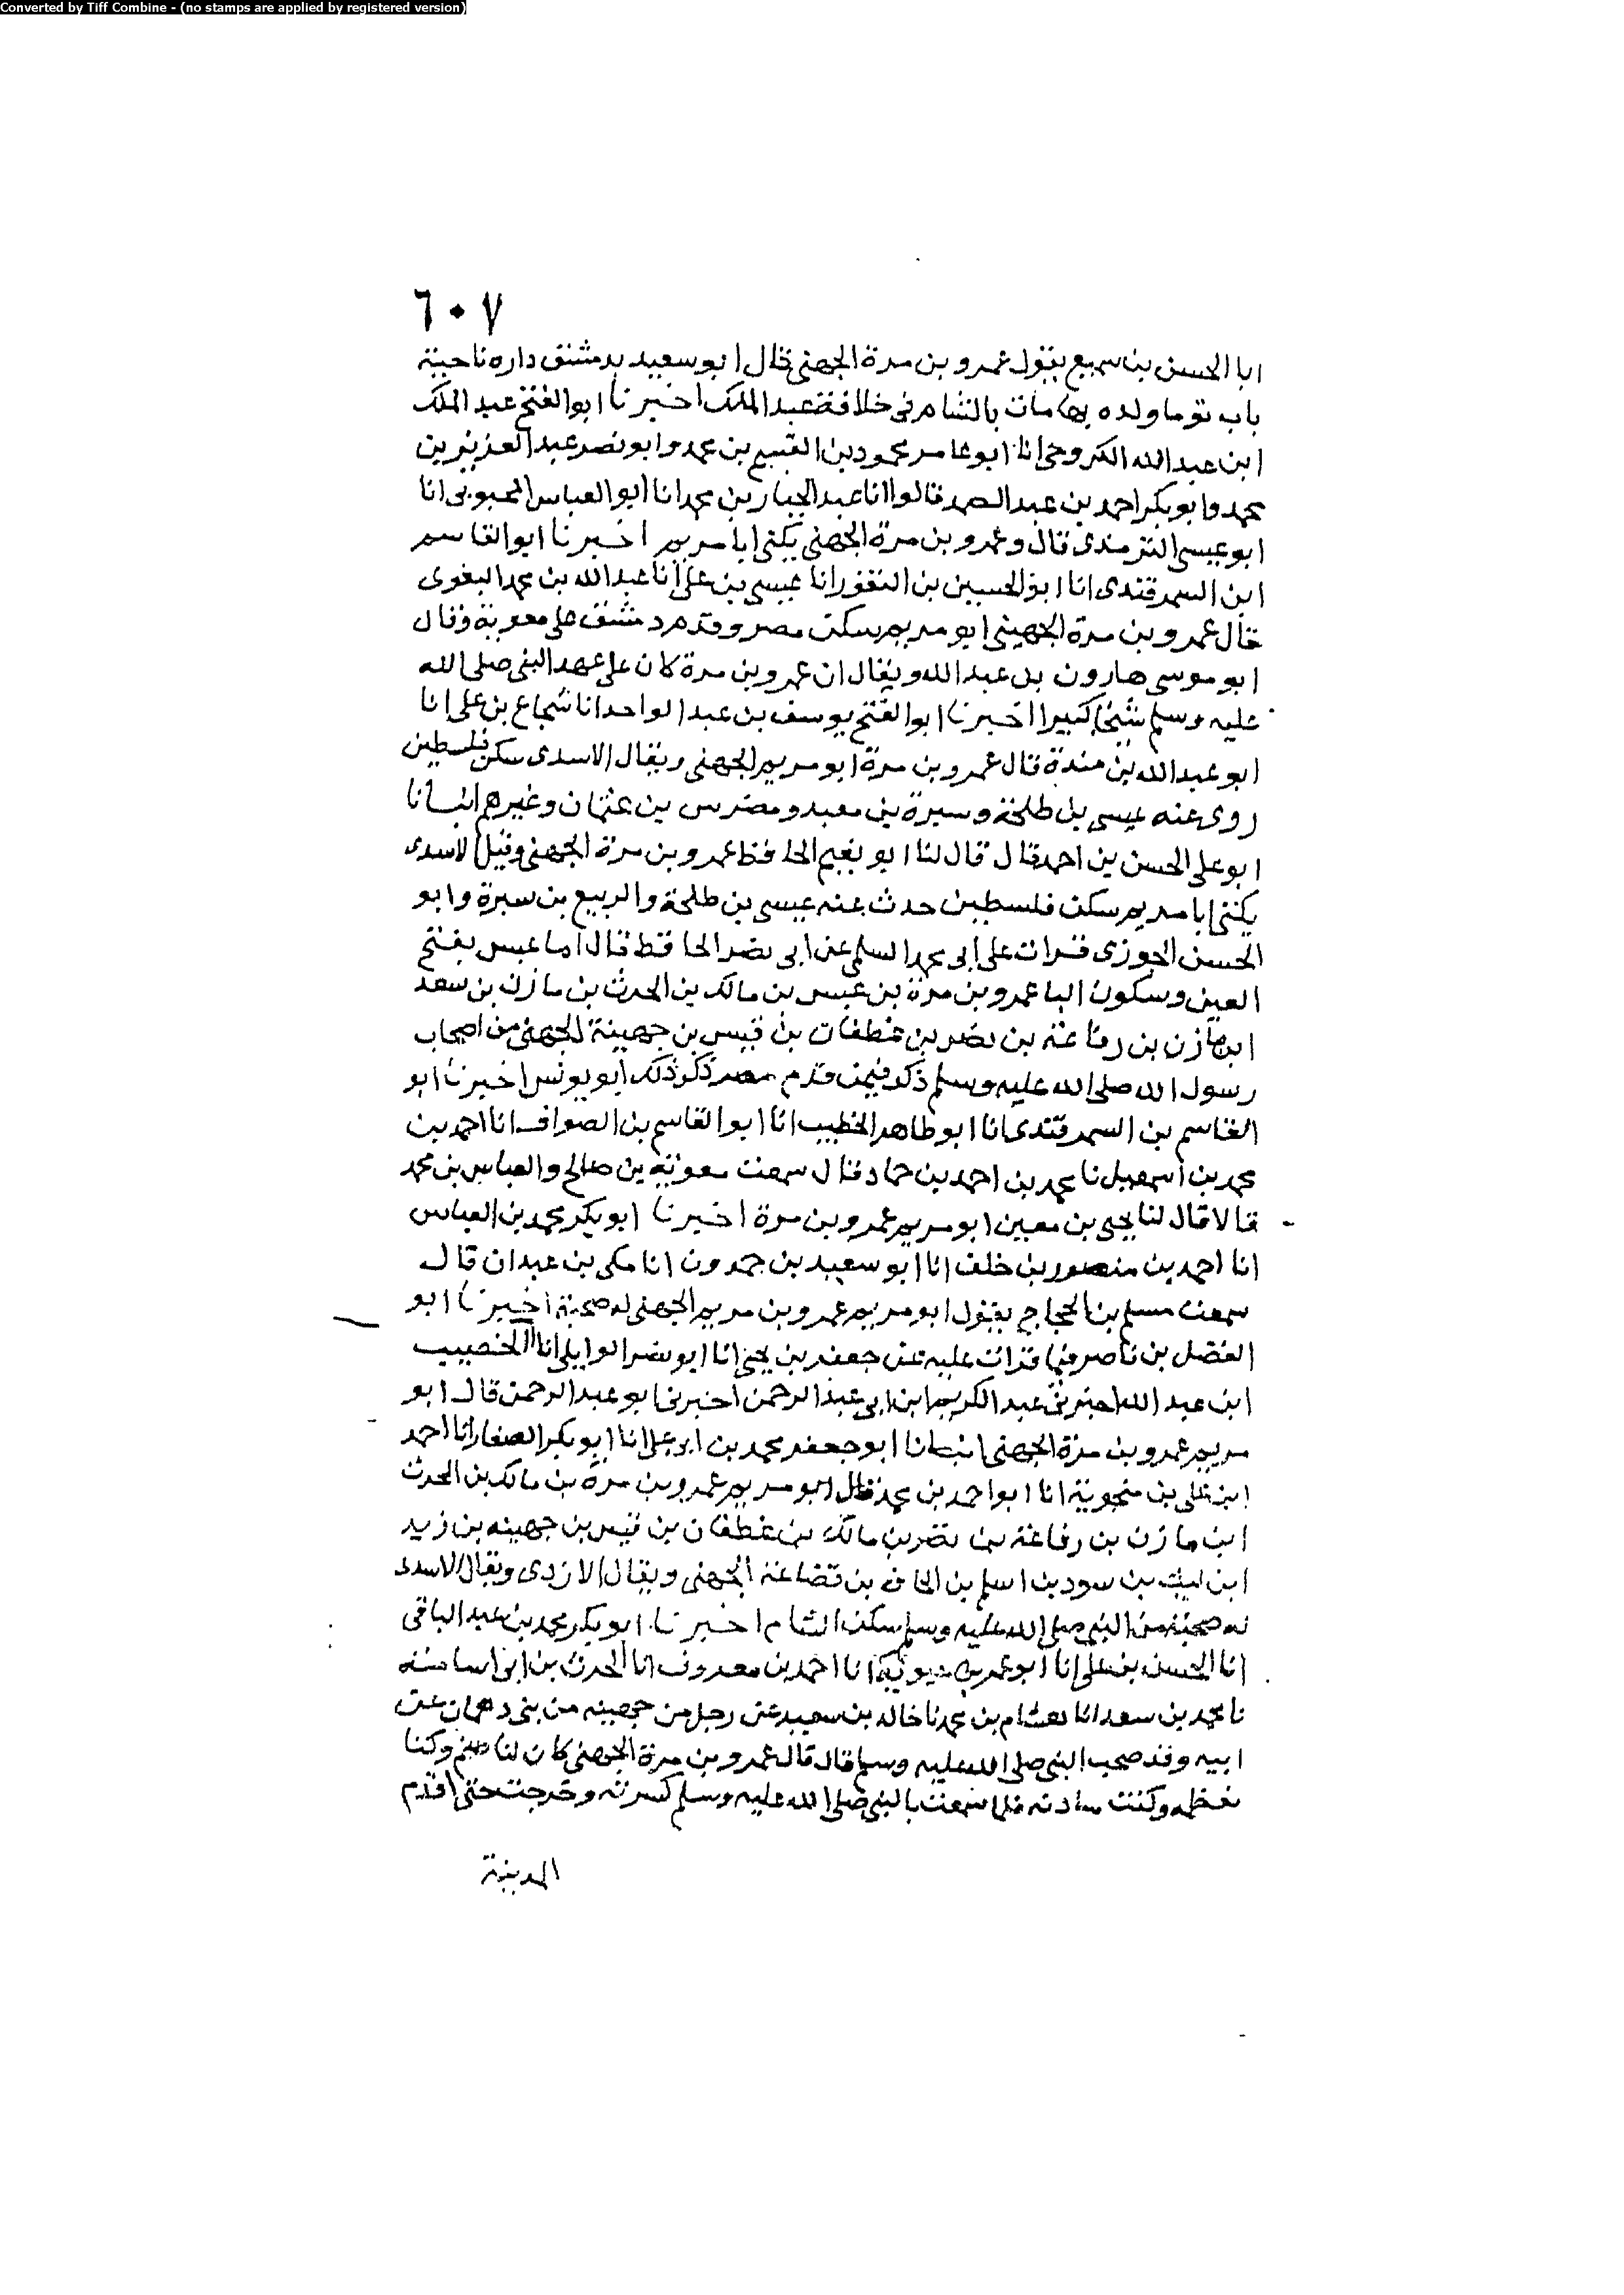 Converted by Tiff Combine - (no stamps are applied by registered version)
٦٠٧
ابا الحسن بن سميع يقول عمرو بن مرة الجهنى قال ابو سعيد بدمشق داره ناحية
باب توما وولده بها مات بالشام فى خلافة عبد الملك اخبرنا ابو الفتح عبد الملك
ابن عبد الله الكروخى انا ابو عامر محمود بن القسم بن محمد وابو نصر عبد العزيز بن
محمد وابو بكر احمد بن عبد الصمد قالوا انا عبد الجبار بن محمد انا ابو العباس المحبوبى انا
ابو عيسى الترمذى قال وعمرو بن مرة الجهنى يكنى ابا مريم اخبرنا ابو القاسم
ابن السمرقندى انا ابو الحسين بن النقور انا عيسى بن على انا عبد الله بن محمد البغوى
قال عمرو بن مرة الجهنى ابو مريم سكن مصر وقدم دمشق على معوية وقال
ابو موسى هارون بن عبد الله ويقال ان عمرو بن مرة كان على عهد النبى صلى الله
عليه وسلم شيخا كبيرا اخبرنا ابو الفتح يوسف بن عبد الواحد انا شجاع بن على انا
ابو عبد الله بن مندة قال عمرو بن مرة ابو مريم الجهنى ويقال الاسدى سكن فلسطين
روى عنه عيسى بن طلحة وسبرة بن معبد ومضرس بن عثمان وغيرهم انبانا
ابو على الحسن بن احمد قال قال لنا ابو نعيم الحافظ عمرو بن مرة الجهنى وقيل الاسدى
يكنى ابا مريم سكن فلسطين حدث عنه عيسى بن طلحة والربيع بن سبرة وابو
الحسن الجوزى قرات على ابى محمد السلمى عن ابى نصر الحافظ قال اما عبس بفتح
العين وسكون البا عمرو بن مرة بن عبس بن مالك بن الحرث بن مازن بن سعد
ابن مازن بن رفاعة بن نصر بن غطفان بن قيس بن جهينة الجهنى من اصحاب
رسول الله صلى الله عليه وسلم ذكر فيمن قدم مصر ذكر ذلك ابو يونس اخبرنا ابو
القاسم بن السمرقندى انا ابو طاهر الخطيب انا ابو القاسم بن الصواف انا احمد بن
محمد بن اسمعيل نا محمد بن احمد بن حماد قال سمعت معوية بن صالح والعباس بن محمد
قالا قال لنا يحيى بن معين ابو مريم عمرو بن مرة اخبرنا ابو بكر محمد بن العباس
انا احمد بن منصور بن خلف انا ابو سعيد بن حمدون انا مكى بن عبدان قال
سمعت مسلم بن الحجاج يقول ابو مريم عمرو بن مريم الجهنى له صحبة اخبرنا ابو
الفضل بن ناصر فيما قرات عليه عن جعفر بن يحيى انا ابو نصر الوايلى انا الخصيب
ابن عبد الله اخبرنى عبد الكريم ابن ابى عبد الرحمن اخبرنى ابو عبد الرحمن قال ابو
مريم عمرو بن مرة الجهنى انبانا ابو جعفر محمد بن ابى على انا ابو بكر الصفار انا احمد
ابن على بن منجوية انا ابو احمد بن محمد قال ابو مريم عمرو بن مرة بن مالك بن الحرث
ابن مازن بن رفاعة بن نصر بن مالك بن غطفان بن قيس بن جهينه بن زيد
ابن ليث بن سود بن اسلم بن الحاف بن قضاعة الجهنى ويقال الازدى ويقال الاسدى
له صحبة من النبى صلى الله عليه وسلم سكن الشام اخبرنا ابو بكر محمد بن عبد الباقى
انا الحسن بن على انا ابو عمر بن حيوية انا احمد بن معروف انا الحرث بن ابى اسامة
نا محمد بن سعد انا هشام بن محمد نا خالد بن سعيد عن رجل من جهينه من بنى دهمان عن
ابيه وقد صحب النبى صلى الله عليه وسلم قال قال عمرو بن مرة الجهنى كان لنا صنم وكنا
نعظمه وكنت سادنه فلما سمعت بالنبى صلى الله عليه وسلم كسرته وخرجت حتى اقدم
المدينة